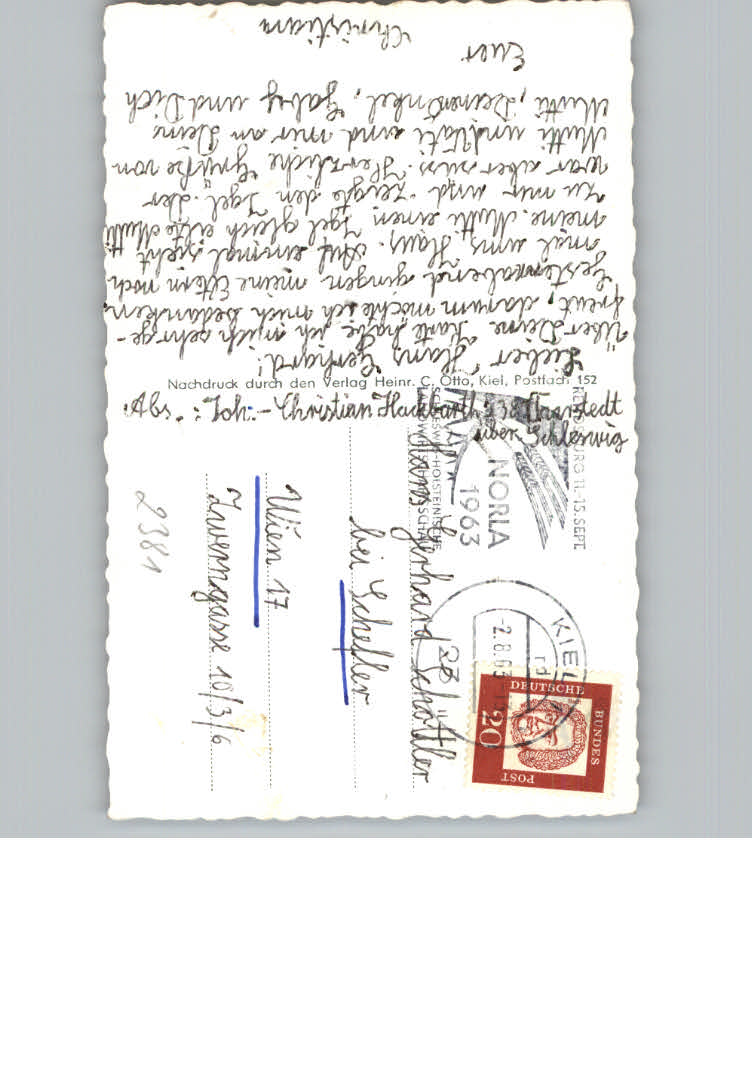 Lieber Hans Gerhard!
Über Deine Karte habe ich mich sehr ge-
freut, darum möchte ich mich bedanken.
Gestern abend gingen meine Eltern noch
mal ums Haus. Auf einmal sieht
meine Mutti einen Igel gleich eilte Mutti
zu mir und zeigte den Igel. Der
war aber süss. Herzliche Grüße von
Mutti und Vati und mir an Deine
Mutti, Deinen Onkel, Gaby und Dich
Euer
Christian
Nachdruck durch den Verlag Heinr. C. Otto, Kiel, Postfach 152
Abs.: Joh.-Christian Hackbarth 238
über Schleswig
RENDSBURG 11.-15. SEPT.
NORLA
1963
SCHLESWIG-HOLSTEINISCHE
KIEL
rd
-2.8.63
DEUTSCHE
BUNDES
POST
20
Hans Gerhard Schöttler
bei Schefler
Wien 17
Zwerngasse 10/3/6
2381